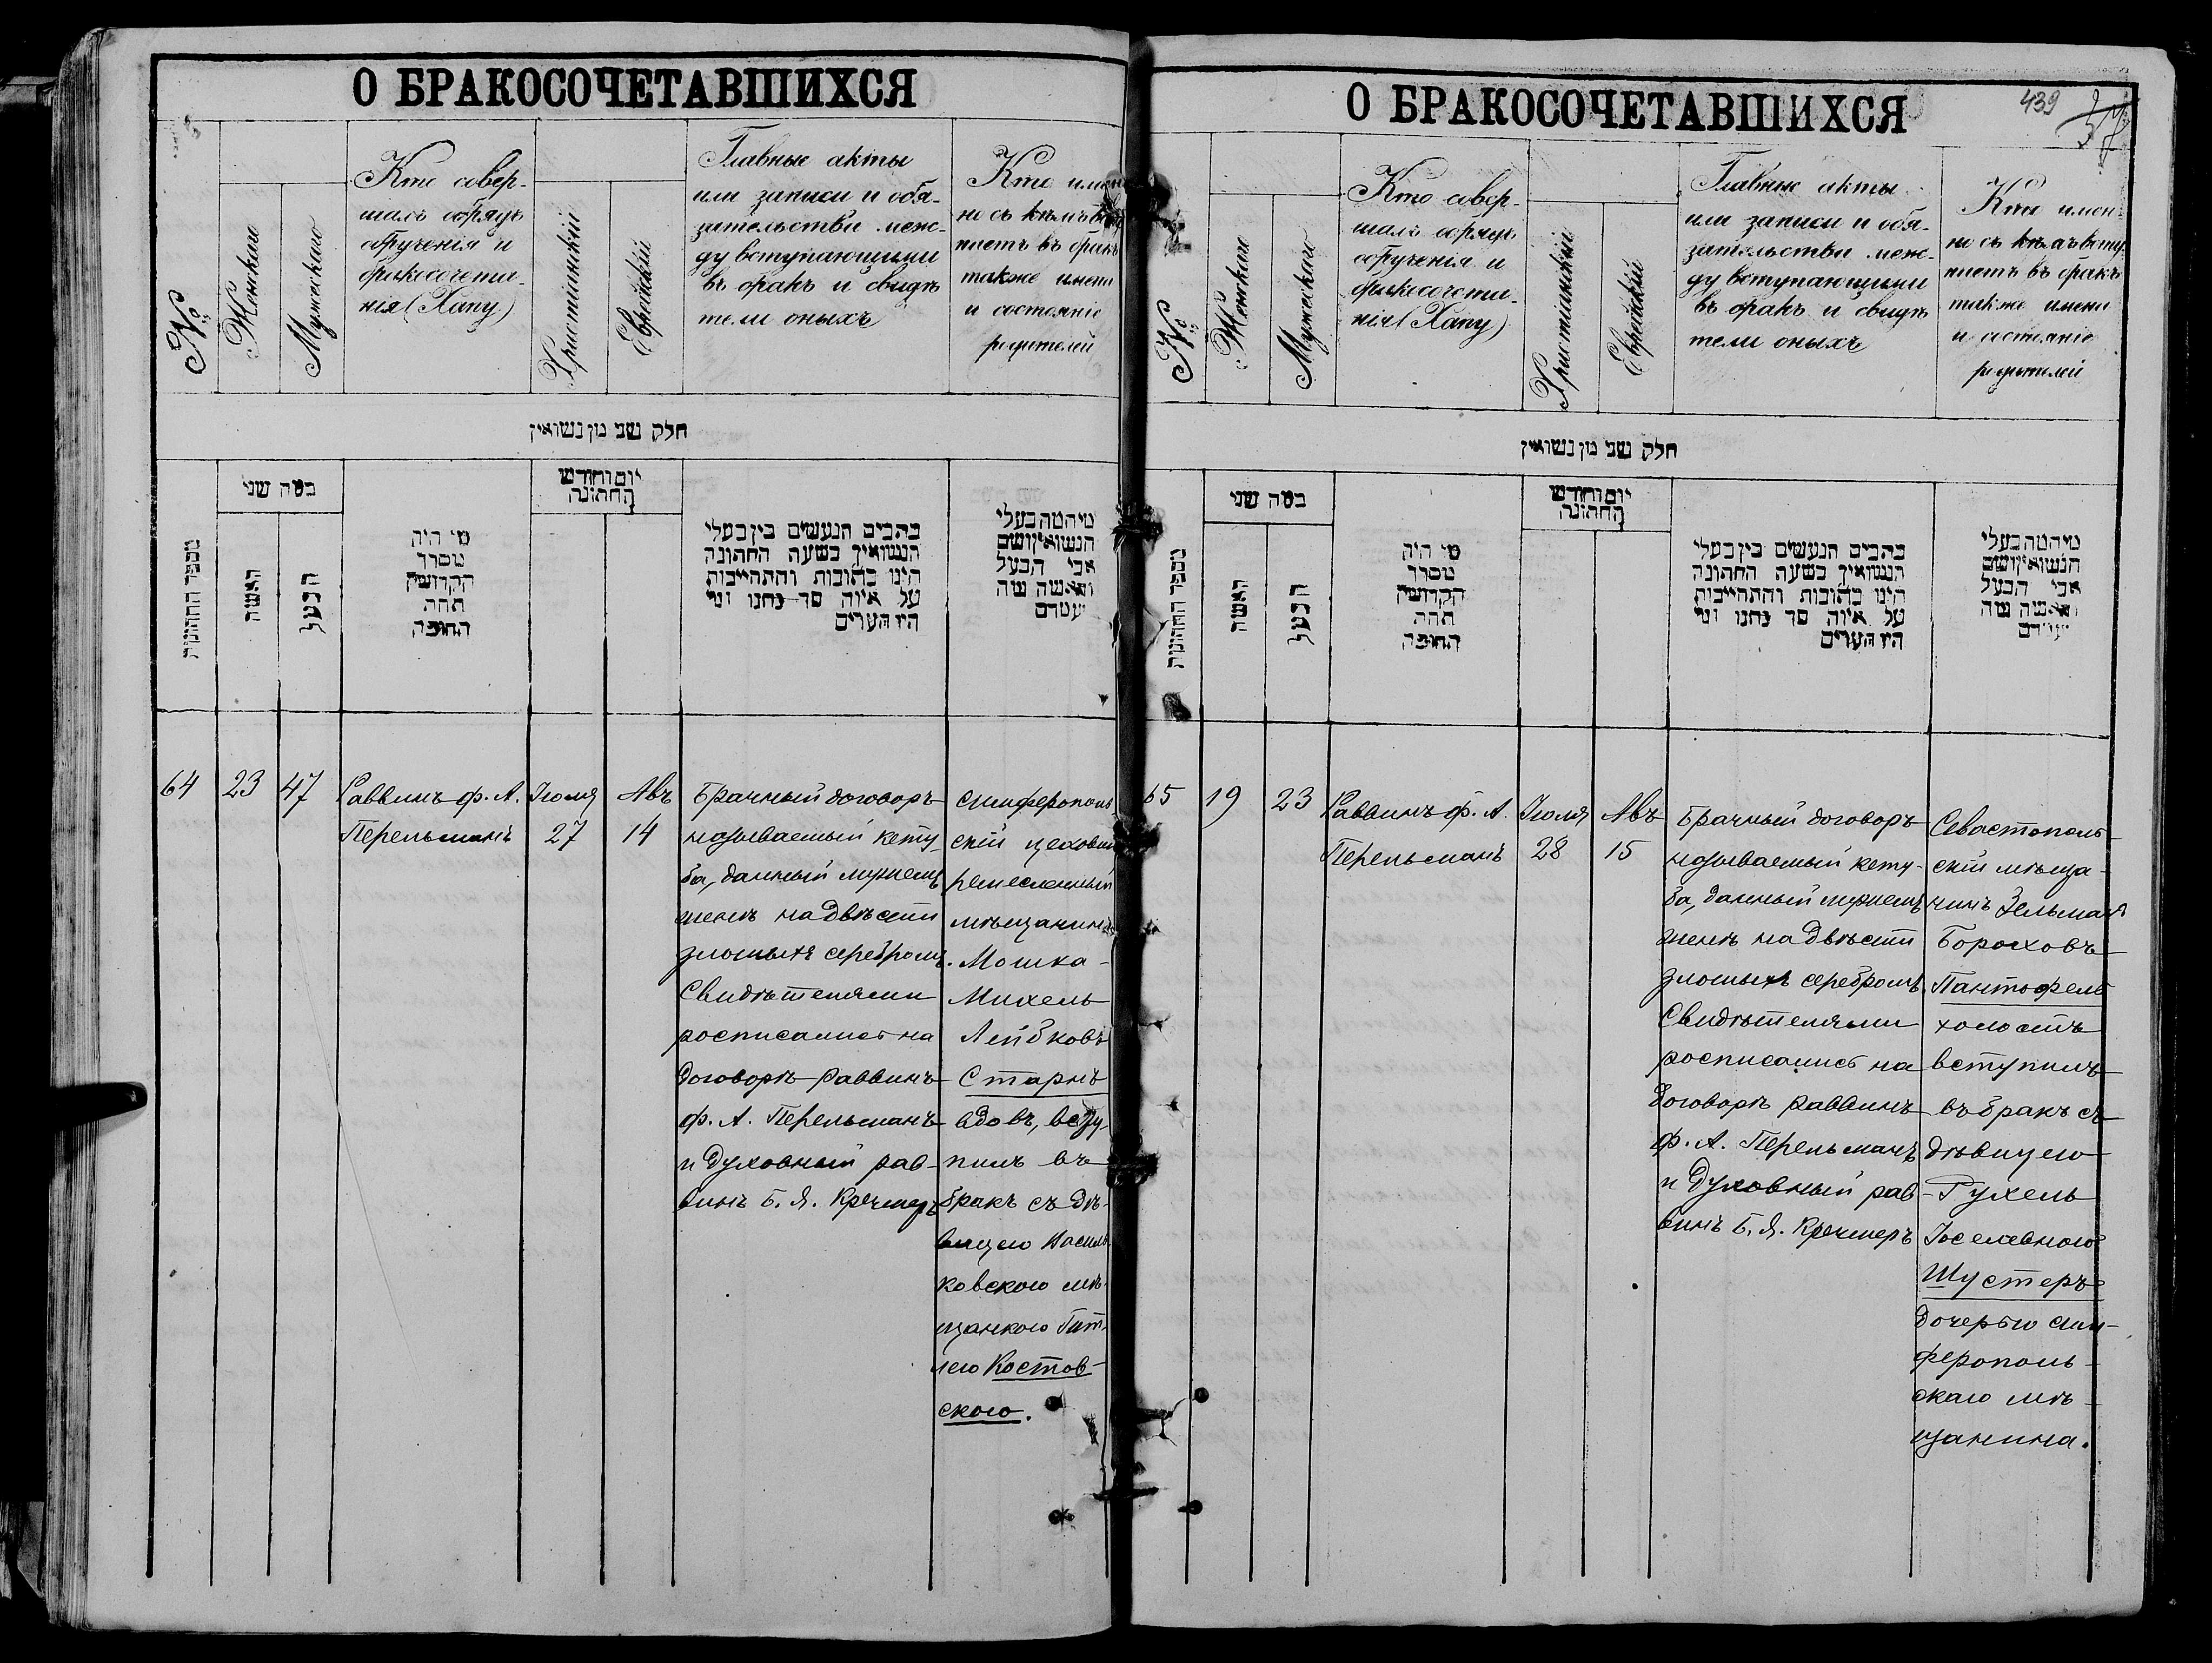 О БРАКОСОЧЕТАВШИХСЯ
№
Женскаго
Мужескаго
Кто совер-
шалъ обрядъ
обрученія и
бракосочета-
нія (Хапу)
Христіанскій
Еврейскій
Главные акты
или записи и обя-
зательства меж-
ду вступающими
въ бракъ и свидѣ
тели оныхъ
Кто имен
но съ кѣмъ всту
паетъ въ бракъ
также имена
и состояніе
родителей
חלק שני מן נשואין
מספר החתונות
כמה שני
האשה
הבעל
מי היה
מסדר
הקדושין
תחת
החופה
יום וחודש
החתונה
כתבים הנעשים בין בעלי
הנשואין בשעת החתונה
היינו כתובות והתחייבות
על איזה סך נתנו ומי
היו העדים
מיהמה בעלי
הנשואין ושם
אבי הבעל
והאשה מה
מעמדם
64
23
47
Раввинъ ф. А.
Перельманъ
Іюля
27
Авъ
14
Брачный договоръ
называемый кету-
ба, данный мужемъ
женѣ на двѣсти
злотыхъ серебромъ.
Свидѣтелями
росписались на
договорѣ раввинъ
ф. А. Перельманъ
и духовный рав-
винъ Б. Я. Кречмеръ
Симферополь
скій цеховый
ремесленный
мѣщанинъ
Мошка-
Михель
Лейбковъ
Старкъ
вдовъ, всту-
пилъ въ
бракъ съ дѣ-
вицею Василь-
ковскою мѣ-
щанкою Гит-
лею Костов-
скою.
О БРАКОСОЧЕТАВШИХСЯ
439
37
№
Женскаго
Мужескаго
Кто совер-
шалъ обрядъ
обрученія и
бракосочета-
нія (Хапу)
Христіанскій
Еврейскій
Главные акты
или записи и обя-
зательства меж-
ду вступающими
въ бракъ и свидѣ
тели оныхъ
Кто имен-
но съ кѣмъ всту
паетъ въ бракъ
также имена
и состояніе
родителей
חלק שני מן נשואין
מספר החתונות
כמה שני
האשה
הבעל
מי היה
מסדר
הקדושין
תחת
החופה
יום וחודש
החתונה
כתבים הנעשים בין בעלי
הנשואין בשעת החתונה
היינו כתובות והתחייבות
על איזה סך נתנו ומי
היו העדים
מיהמה בעלי
הנשואין ושם
אבי הבעל
והאשה מה
מעמדם
65
19
23
Раввинъ ф. А.
Перельманъ
Іюля
28
Авъ
15
Брачный договоръ
называемый кету-
ба, данный мужемъ
женѣ на двѣсти
злотыхъ серебромъ.
Свидѣтелями
росписались на
договорѣ раввинъ
ф. А. Перельманъ
и духовный рав-
винъ Б. Я. Кречмеръ
Севастополь-
скій мѣща-
нинъ Зельманъ
Бороховъ
Пантофель
холостъ
вступилъ
въ бракъ съ
дѣвицею
Рухель
Іоселевною
Шустеръ
дочерью сим-
ферополь-
скаго мѣ-
щанина.